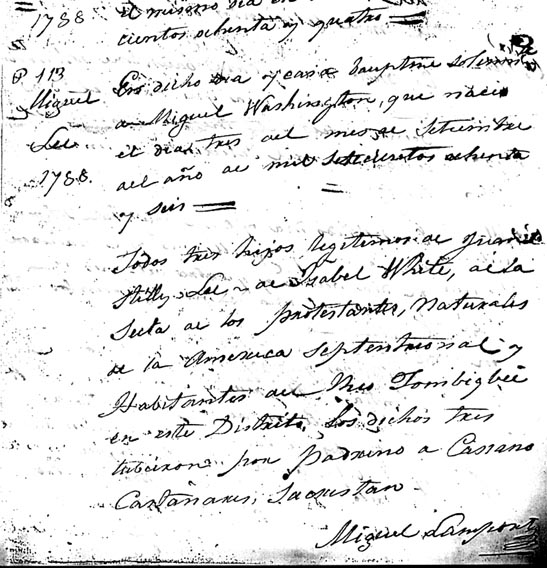 1788
el mismo dia
cientos ochenta y quatro
P 113
Miguel
Lee
1788.
En dicho dia y casa bauptise solemn
a Miguel Washington, que nacio
el dia tres del mes de Setiembre
del año de mil setecientos ochenta
y seis
Todos tres hijos legitimos de
Lee de Isabel White, de la
Secta de los protestantes, Naturales
de la America Septentrional y
Habitantes del Rio Tombigbee
en este Distrito. Los dichos tres
tubieron por Padrino a
Castañares, Sacristan
Miguel Lamport